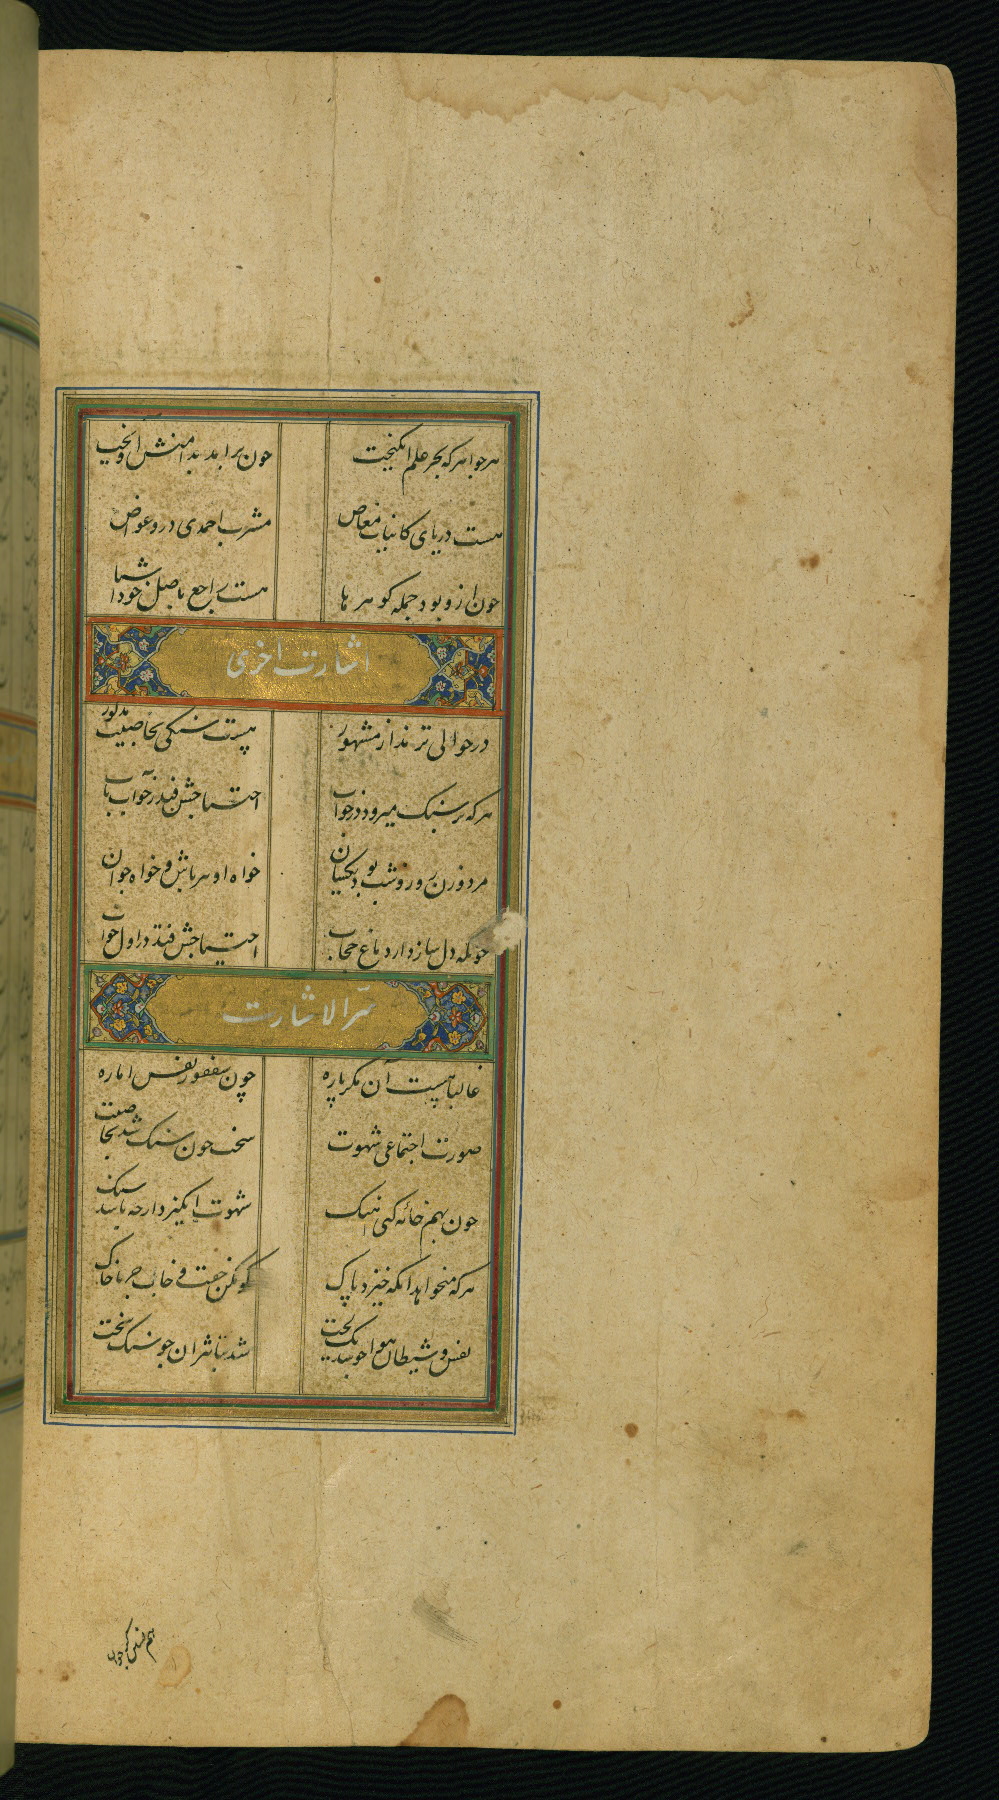 هر جواهر که بحر علم انگیخت چون برآمد بدامنش آویخت
هست دریای کاینات مغاص مشرب احمدی درو غواص
چون ازو بود جمله گوهرها هست راجع باصل خود اشیا
اشارت اخری
در حوالی ترمذ از مشهور هست سنگی بخاصیت مذکور
هر که بر سنگ میرود در خواب احتیاجش فتد ز خواب بآب
مرد و زن روز و شب بود یکسان خواه او پیر باش و خواه جوان
چونکه دل ساز دارد باغ حجاب احتیاجش فتد در اول خواب
سرّ الاشارت
غالبا هست آن مکر پاره چون سقنقور نفس اماره
صورت اجتماعی شهوت سخت چون سنگ شد بخاصیت
چون بهم خانه کهی شهوت انگیزد ارچه باشد سنگ
هر که میخواهد آنکه خیزد پاک گو مکن خفت و خاب جز با خاک
نفس و شیطان هوا چو شد یک لخت شد بتاثیر آن چو سنگ سخت